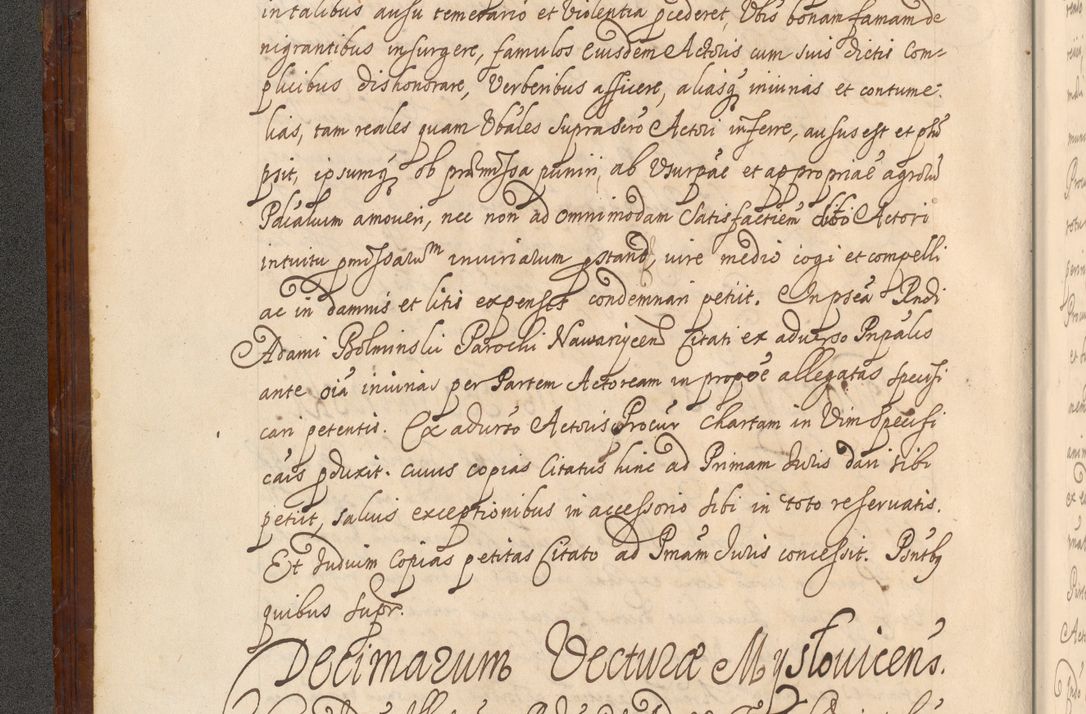 in talibus ausu temerario et Violentia pcederet, Vbis bonam famam de
nigrantibus insurgere, famulos Eiusdem Actoris cum suis dictis Com-
plicibus dishonorare, Verberibus afficere, aliasq iniurias et contume-
lias, tam reales quam Vbales supra sero Actori inferre, ausus est et
psit, ipsumq ob praemissa puniri, ab Vsurpae et appropriae agroru
Palium amoueri, nec non ad omnimodam Satisfactiem dicto Actori
intuitu pmissaru iniuriarum pstand, iure medio cogi et compelli
ac in damnis et litis expensis condemnari petiit. In psea Rndi
Adami Bolminski Parochi Nawarycen Citati ex aduerso Pnpalis
ante oia iniurias per Partem Actoream in propoe allegatas specifi
cari petentis. Ex aduerso Actoris Procur Chartam in Vim Specifi
cais pduxit. cuius copias Citatus hinc ad Primam Iuris dari sibi
petiit, saluis exceptionibus in accessorio sibi in toto reseruatis.
Et Iudium Copias petitas Citato ad Pmam Iuris concessit. Psntbq
quibus supr.
Decimarum Vecturae Myslouicens.